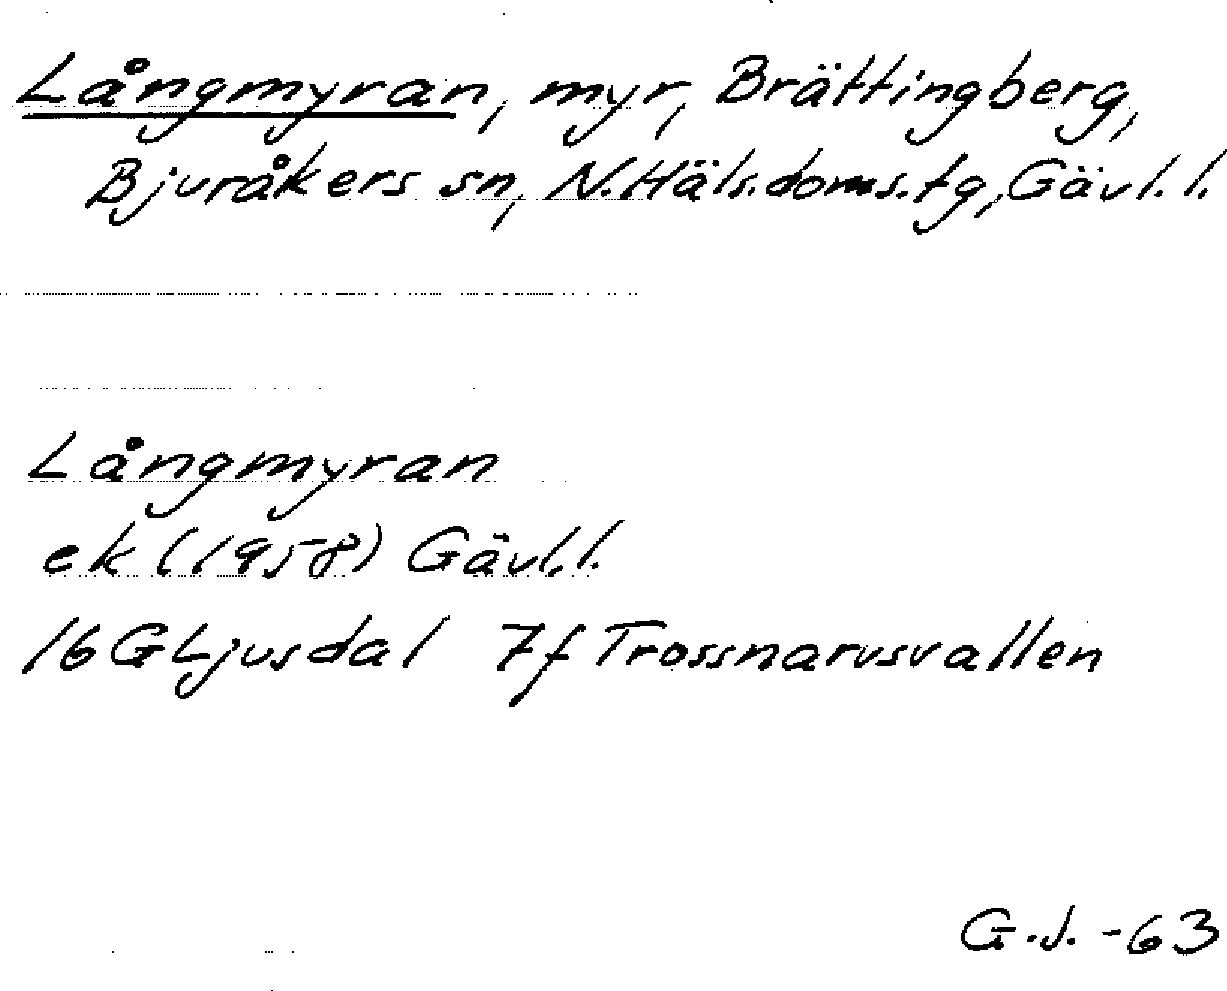 Långmyran, myr, Brättingberg,
Bjuråkers sn, N.Häls.doms.tg, Gävl.l.
Långmyran
ek (1958) Gävl.l.
16 G Ljusdal 7f Trossnarvsvallen
G.J. -63